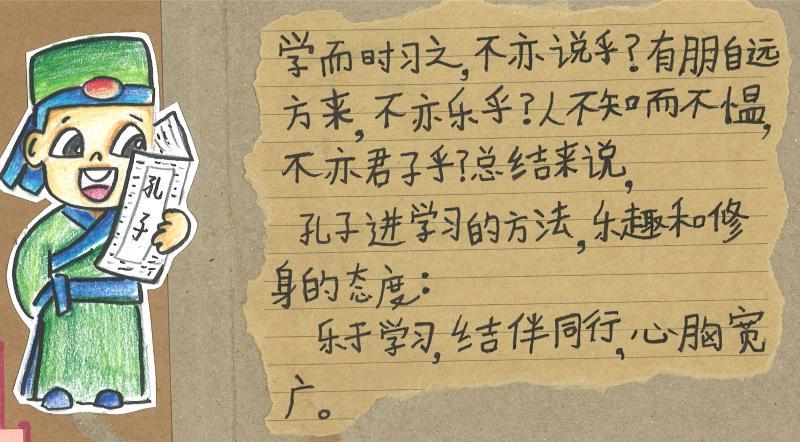 孔子
学而时习之,不亦说乎?有朋自远
方来,不亦乐乎?人不知而不愠,
不亦君子乎?总结来说,
孔子进学习的方法,乐趣和修
身的态度:
乐于学习,结伴同行,心胸宽
广。